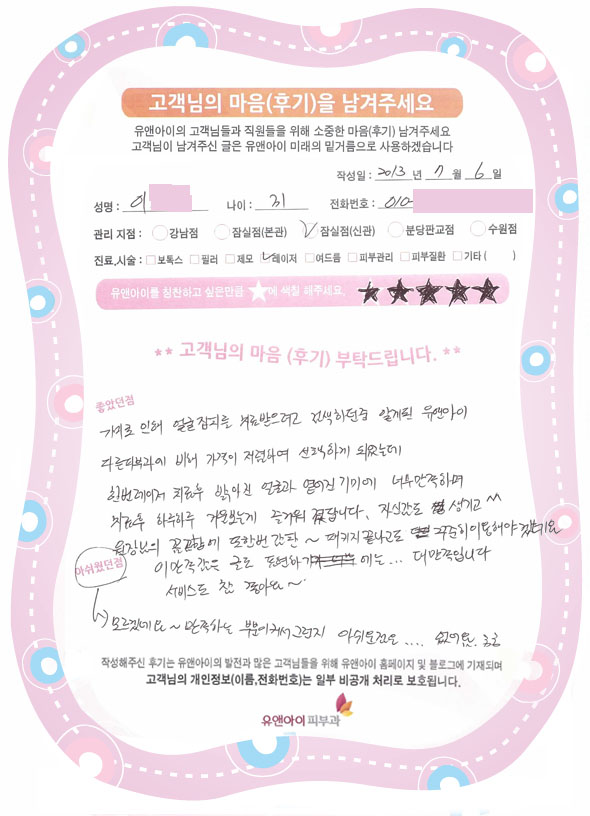 고객님의 마음(후기)을 남겨주세요
유앤아이의 고객님들과 직원들을 위해 소중한 마음(후기) 남겨주세요
고객님이 남겨주신 글은 유앤아이 미래의 밑거름으로 사용하겠습니다
작성일 : 2013 년 7 월 6 일
성명 : 이 나이 : 31 전화번호 : 010-
관리 지점 : 강남점 잠실점(본관) 잠실점(신관) 분당판교점 수원점
진료.시술 : 보톡스 필러 제모 레이저 여드름 피부관리 피부질환 기타 ( )
유앤아이를 칭찬하고 싶은만큼 ★에 색칠 해주세요. ★★★★★
** 고객님의 마음 (후기) 부탁드립니다. **
좋았던점
인해 얼굴잡티를 치료받으려고 검색하던중 알게된 유앤아이
다른피부과에 비해 가격이 저렴하여 선택하게 되었는데
한번레이저 치료후 밝아진 얼굴과 옅어진 기미에 너무만족하며
치료후 하루하루 거울보는게 즐거워 졌답니다. 자신감도 생기고 ^^
원장님의 꼼꼼함에 또한번 감탄 ~ 패키지끝나고도 꾸준히이용해야겠네요
아쉬웠던점
이만족감은 글로 표현하기에는... 대만족입니다
서비스도 참 좋아요~
모르겠네요~ 만족하는 부분이커서그런지 아쉬운점은 .... 없어요. ㅎㅎ
작성해주신 후기는 유앤아이의 발전과 많은 고객님들을 위해 유앤아이 홈페이지 및 블로그에 기재되며
고객님의 개인정보(이름,전화번호)는 일부 비공개 처리로 보호됩니다.
유앤아이피부과